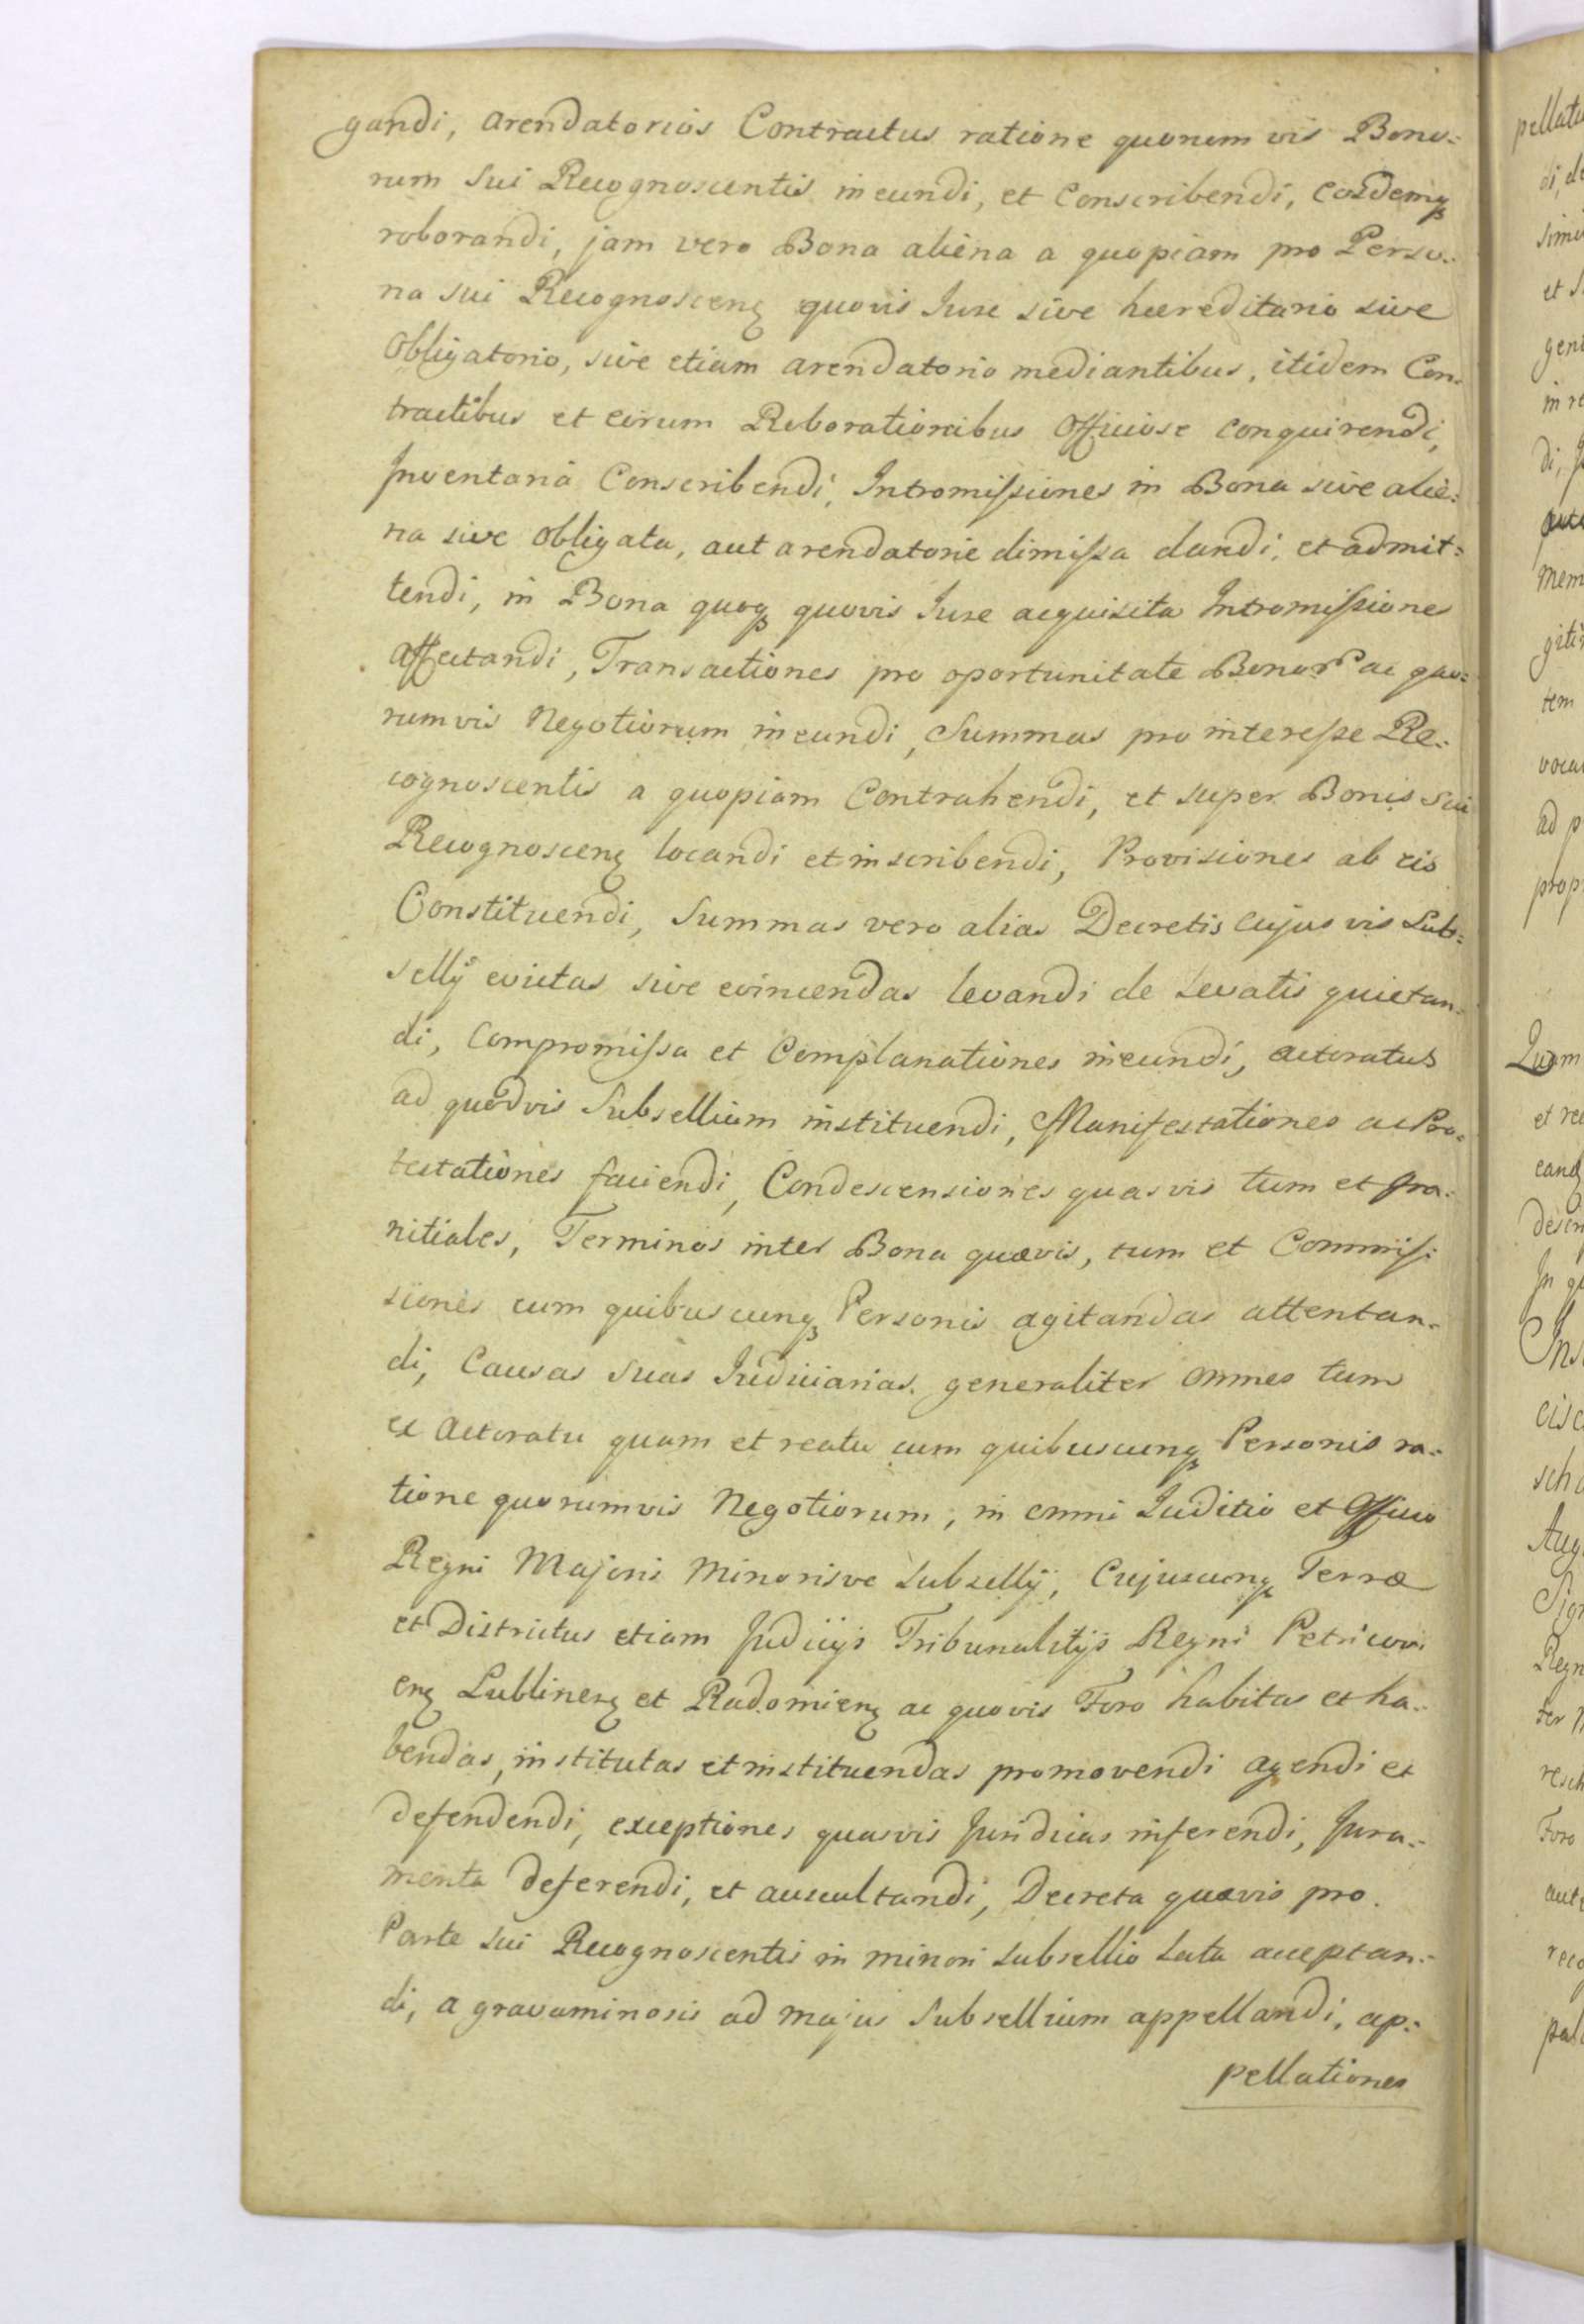 gandi, arendatorios Contractus ratione quorum vis Bono-
rum sui Recognoscentis ineundi, et Conscribendi, eosdemq3
roborandi, jam vero Bona aliena a quopiam pro Perso-
na sui Recognoscenz quovis Jure sive hæreditario sive
Obligatorio, sive etiam arendatorio mediantibus, itidem Con-
tractibus et eorum Roborationibus Officiose conquirendi,
Inventaria Conscribendi, Intromissiones in Bona sive alie-
na sive Obligata, aut arendatorie dimissa dandi, et admit-
tendi, in Bona quoq3 quovis Jure acquisita Intromissiones
Affectandi, Transactiones pro oportunitate Bonor ac quo-
rumvis Negotiorum ineundi, Summas pro interesse Re-
cognoscentis a quopiam Contrahendi, et super Bonis sui
Recognoscenz locandi et inscribendi, Provisiones ab eis
Constituendi, Summas vero alias Decretis cujus vis Sub-
sellÿ evictas sive evincendas levandi de levatis quietan-
di, Compromissa et Complanationes ineundi, actoratus
ad quodvis Subsellium instituendi, Manifestationes ac Pro-
testationes faciendi, Condescensiones quasvis tum et gra-
nitiales, Terminos inter Bona quævis, tum et Commis-
siones cum quibuscunq3 Personis agitandas attentan-
di, Causas suas Judiciarias generaliter omnes tum
ex Actoratu quam et reatu cum quibuscunq3 Personis ra-
tione quorumvis Negotiorum, in omni Juditio et Officio
Regni Majoris Minorisve Subsellÿ, Cujuscunq3 Terræ
et Districtus etiam Judicÿs Tribunalitÿs Regni Petricovi
enz Lublinenz et Radomienz ac quovis Foro habitas et ha-
bendas, institutas et instituendas promovendi agendi et
defendendi, exceptiones quasvis Juridicas inferendi, Jura-
menta deferendi, et auscultandi, Decreta quævis pro
Parte sui Recognoscentis in minori Subsellio lata acceptan-
di, a gravaminosis ad majus Subsellium appellandi, ap-
pellationes